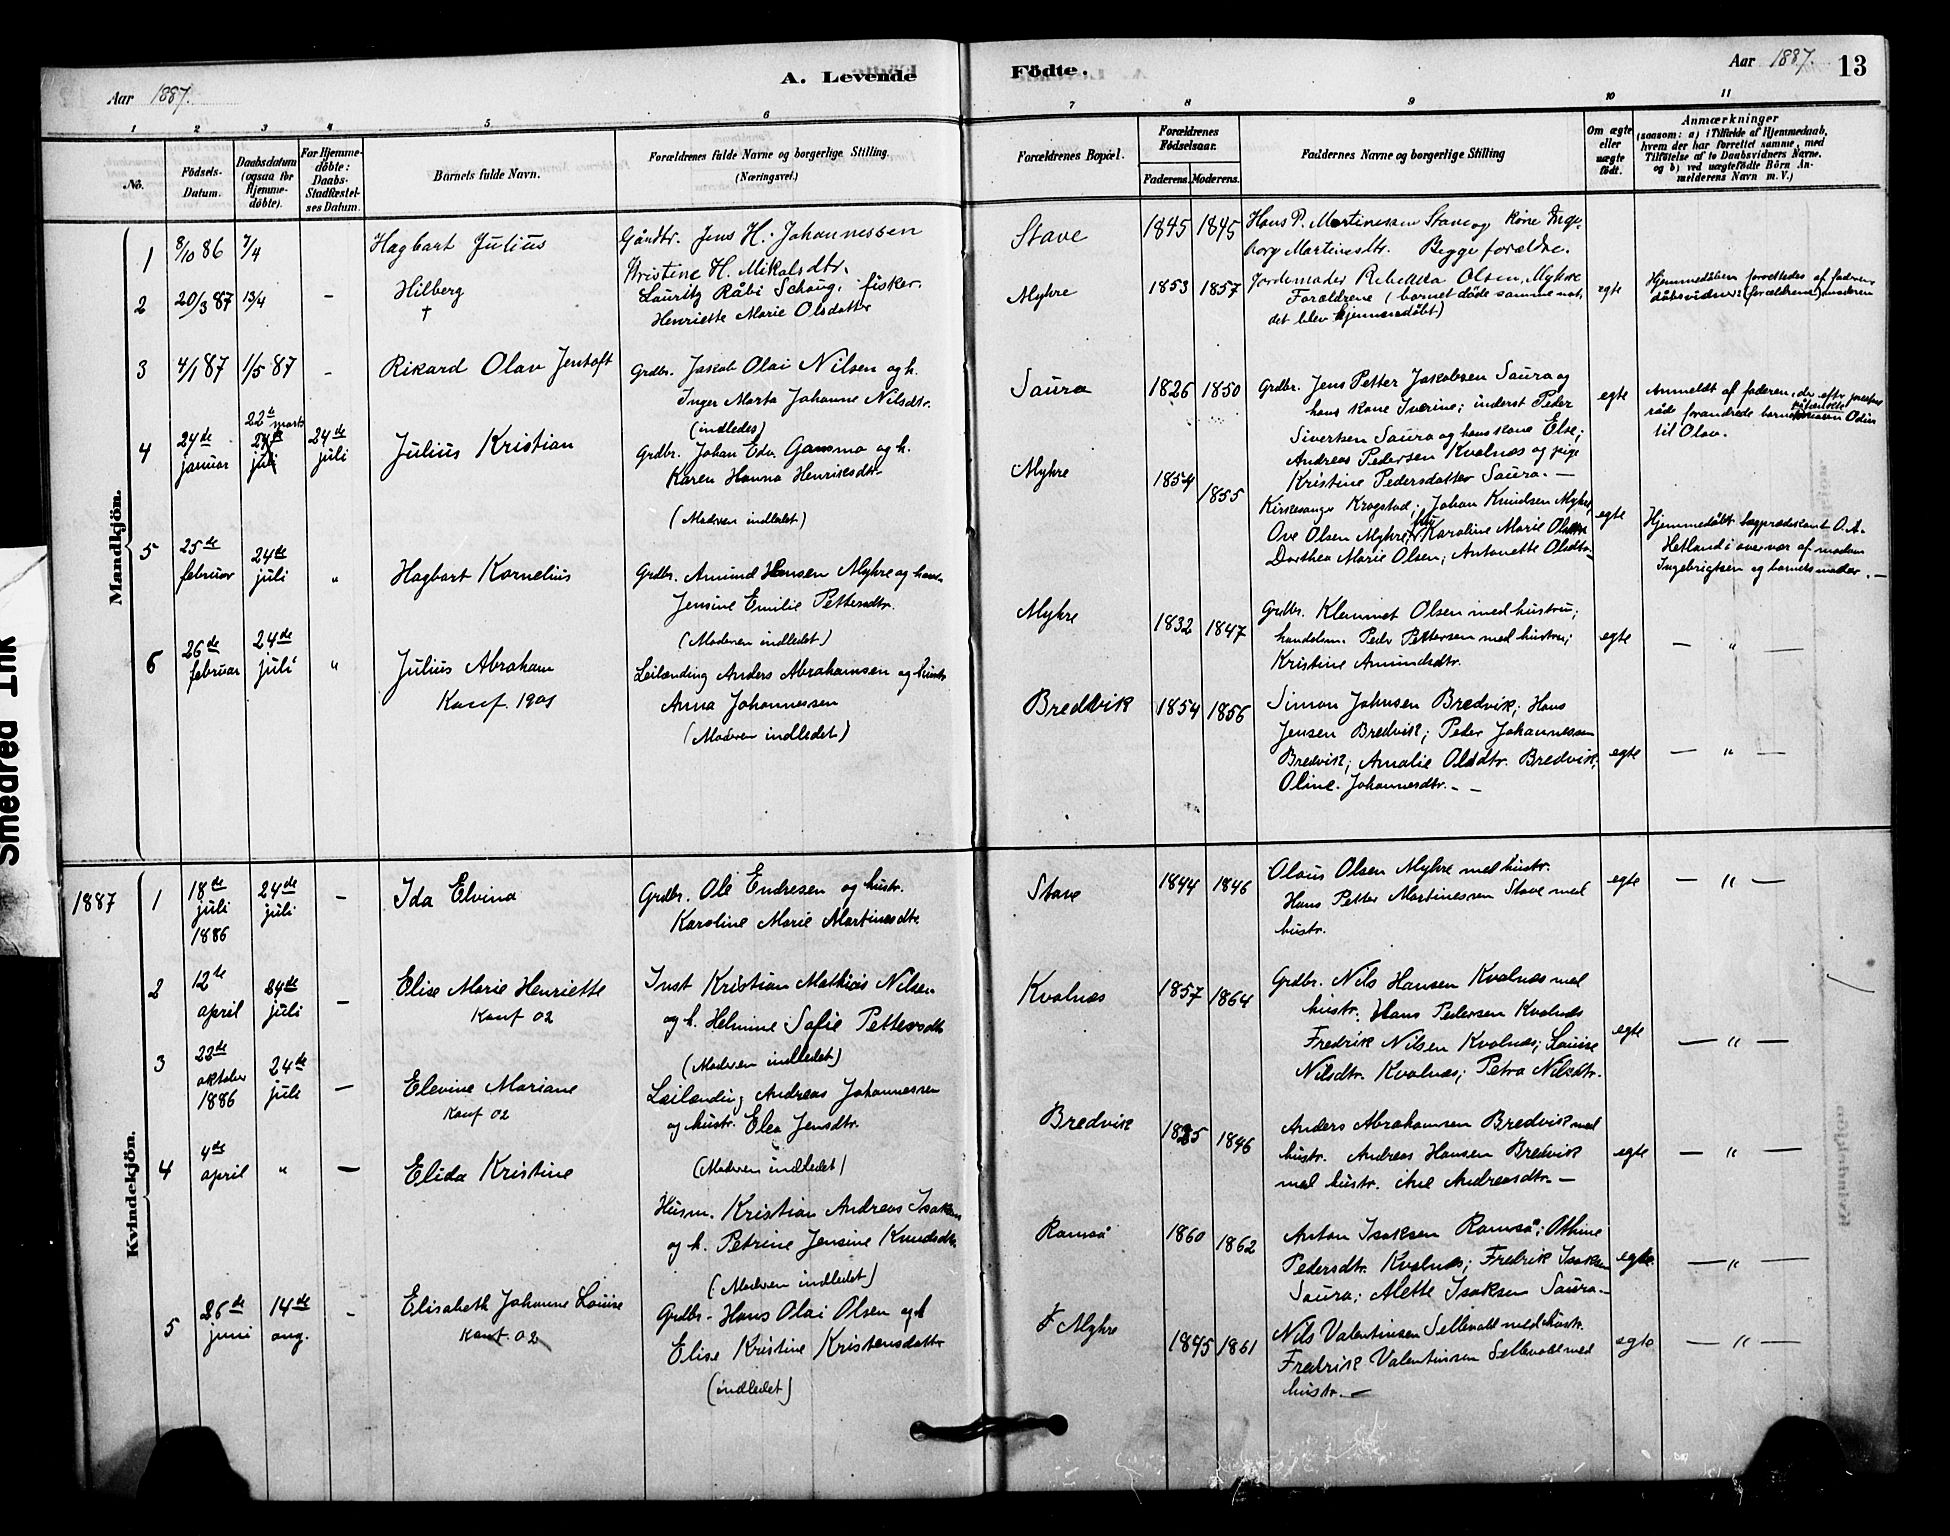 Aar 1887.
A. Levende
1 2 3 4 5 6
No.
Födsels-
Datum.
Daabsdatum
(ogsaa for
Hjemme-
döbte).
For Hjemme-
döbte:
Daabs-
Stadfæstel-
ses Datum.
Barnets fulde Navn.
Forældrenes fulde Navne og borgerlige Stilling.
(Næringsvei.)
Mandkjön.
1 8/10 86 7/4 Hagbart Julius
Gårdbr. Jens H. Johannessen
Kristine H. Mikalsdtr.
2 20/3 87 13/4 – Hilberg
†
Lauritz Råbi Schaug, fisker.
Henriette Marie Olsdatter
3 4/1 87 1/5 87 – Rikard Olav Jentoft
Grdbr. Jakob Olai Nilsen og h.
Inger Marta Johanne Nilsdtr.
(indledes)
4 24de januar
22de marts
24de juli
24de juli
Julius Kristian
Grdbr. Johan Edv. Gamsmo og h.
Karen Hanna Henriksdtr.
(Moderen indledet)
5 25de februar
24de juli
"
Hagbart Kornelius
Grdbr. Amund Hansen Myhre og
Jensine Emilie Pettersdtr.
(Moderen indledet)
6 26de februar
24de juli
"
Julius Abraham
Konf. 1901
Leilænding Anders Abrahamsen og hustr.
Anna Johannessen
(Moderen indledet)
1887
Kvindekjön.
1 18de juli 1886
24de juli
–
Ida Elvina
Grdbr. Ole Endresen og hustr.
Karoline Marie Martinesdtr.
2 12te april
24de juli
–
Elise Marie Henriette
Konf 02
Inst Kristian Mathias Nilsen
og h. Helmine Sofie Pettersdtr
(Moderen indledet)
3 22de oktober 1886
24de juli
–
Elevine Mariane
Konf 02
Leilænding Andreas Johannessen
og hustr. Elea Jensdtr.
(Moderen indledet)
4 4de april
"
–
Elida Kristine
Husm. Kristian Andreas Isaksen
og h. Petrine Jensine Knudsdtr.
(Moderen indledet)
5 26de juni
14de aug.
–
Elisabeth Johanne Louise
Konf. 02
Grdbr. Hans Olai Olsen og h
Elise Kristine Kristensdatter
(indledet)
Födte.
Aar 1887.
13
7 8 9 10 11
Forældrenes Bopæl.
Forældrenes
Födselsaar.
Faderens. Moderens.
Faddernes Navne og borgerlige Stilling
Om ægte
eller
uægte
födt.
Anmærkninger
(saasom: a) i Tilfælde af Hjemmedaab,
hvem der har forrettet samme, med
Tilföielse af to Daabsvidners Navne.
og b) ved uægtefödte Börn An-
melderens Navn m. V.)
Stave 1845 1845
Hans P. Martinessen Stave og kone Inge-
borg Martinesdtr. Begge forældre.
Myhre 1853 1857
Jordemoder Rebekka Olsen, Myhre
Forældrene (barnet döde samme nat,
det blev hjemmedöbt)
egte
Hjemmedåben forrettedes af faderen
dåbsvidner: (forældrene) moderen
Saura 1826 1850
Grdbr. Jens Petter Jakobsen Saura og
hans kone Iverine; inderst Peder
Sivertsen Saura og hans kone Else;
Andreas Pedersen Kvalnæs og pige
Kristine Pedersdatter Saura. –
egte
Anmeldt af faderen, der efter
råd forandrede Odin
til Olav.
Myhre 1854 1855
Kirkesanger Krogstad; Johan Knudsen Myhre,
Ove Olsen Myhre, Karoline Marie
Dorthea Marie Olsen; Antonette Olsdtr.
egte
Hjemmedöbt lægprædikant O. A.
Hetland i overvær af madam
Ingebrigtsen og barnets moder. –
Myhre 1832 1847
Grdbr. Klemmet Olsen med hustru;
handelsm. Peder Pettersen med hustru;
Kristine Amundsdtr.
egte
– " –
Bredvik 1854 1856
Simon Johnsen Bredvik; Hans
Jensen Bredvik; Peder Johannessen
Bredvik; Amalie Olsdtr. Bredvik;
Oline Johannesdtr. – –
egte
– " –
Stave 1844 1846
Olaus Olsen Myhre med hustr.
Hans Petter Martinessen Stave med
hustr.
egte
– " –
Kvalnæs 1857 1864
Grdbr. Nils Hansen Kvalnæs med
hustr. Hans Pedersen Kvalnæs
Fredrik Nilsen Kvalnæs; Louise
Nilsdtr. Kvalnæs; Petra Nilsdtr.
egte
– " –
Bredvik 1846
Anders Abrahamsen Bredvik med
hustr. Andreas Hansen Bredvik
med hustr. Ane Andreasdtr. –
egte
– " –
Ramså 1860 1862
Anton Isaksen Ramså; Othine
Pedersdtr. Kvalnæs; Fredrik Isaksen
Saura; Alette Isaksen Saura. –
egte
– " –
Myhre 1845 1861
Nils Valentinsen Sellevold med hustr.
Fredrik Valentinsen Sellevold med
hustr. –
egte
– " –
Smedred Ink